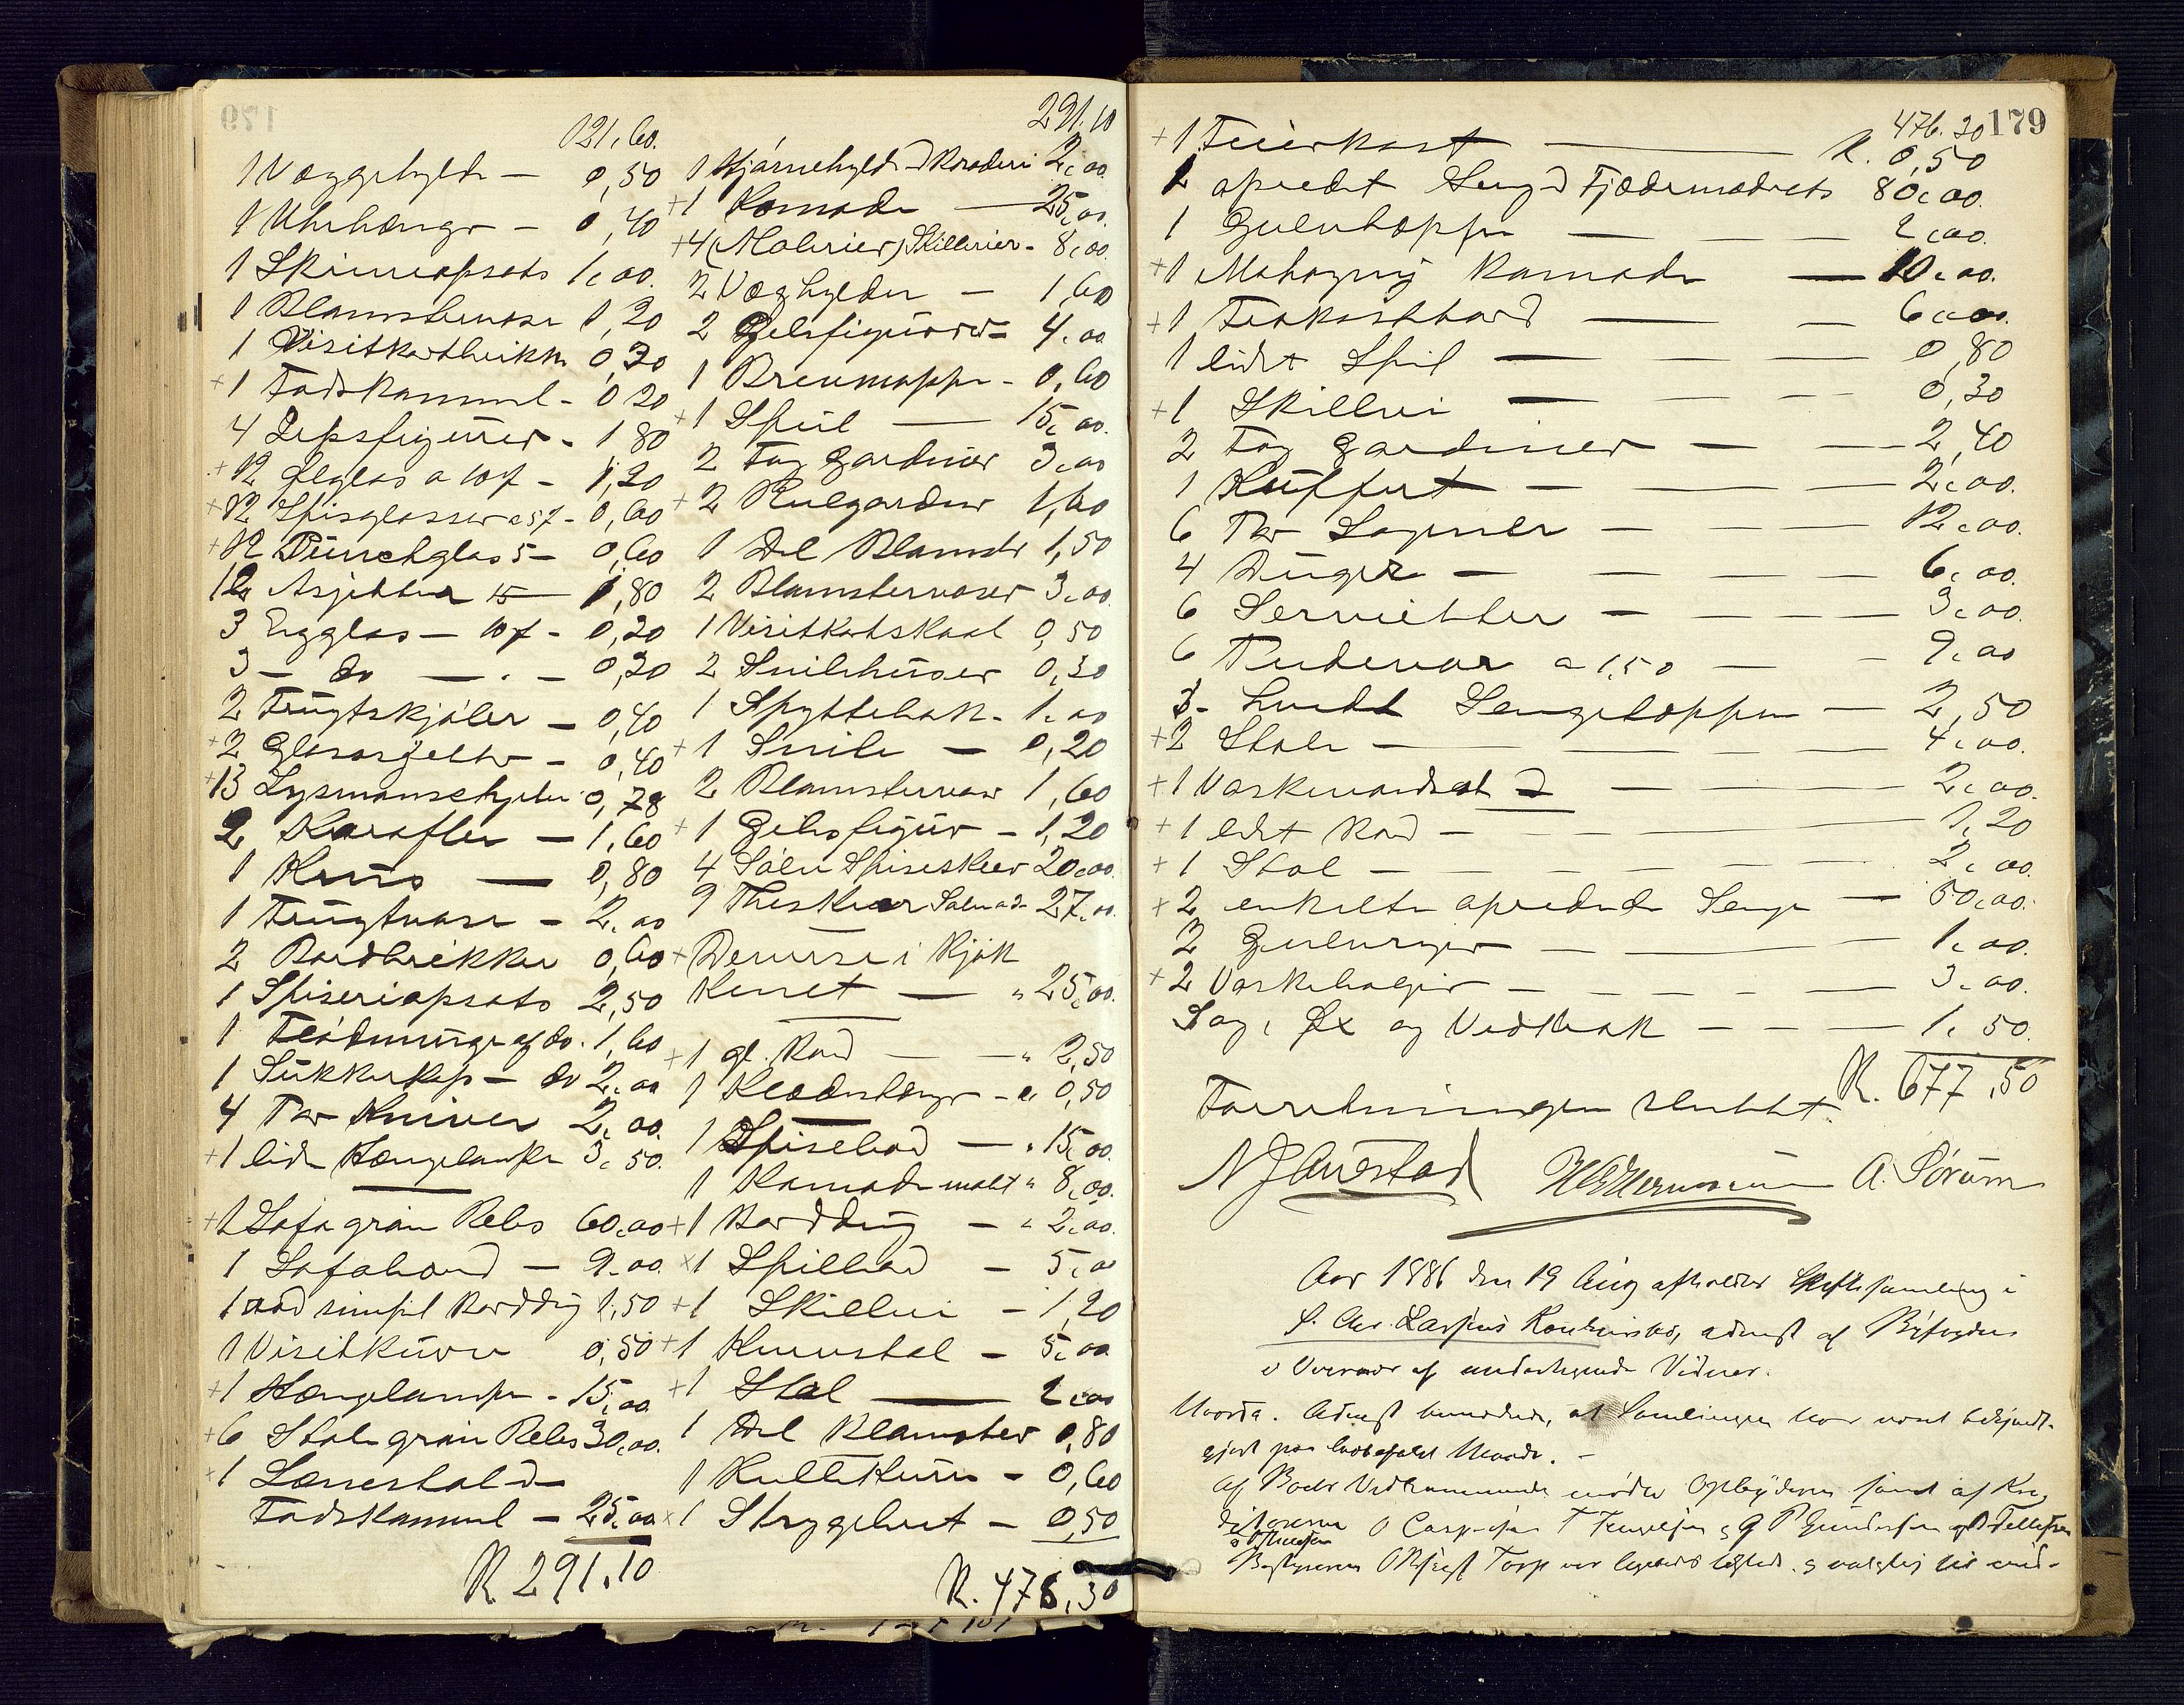 121,60.
1 Væggehylde — 0,50
1 Uhrhænger — 0,40
1 Skriveopsats 1,00.
1 Blomstervase 1,20
1 Visitkortbrikke 0,30
+1 Fodskammel - 0 20
4 Gipsfigurer - 1 80
+12 Ølglas a 10 f - 1,20
+12 Spidsglasser a 5 f - 0,60
+12 Punchglas 5 — 0,60
12 Asjetter 15 — 1,80
3 Eggglas — 10 f - 0,30
3 — do — . — 0,30
2 Frugtskjåler — 0,40
+2 Glasasjetter — 0,40
+13 Lysmanschetter 0,78
2 Karafler — 1,60
1 Krus — 0,80
1 Frugtvase — 2,00
2 Bordbrikker 0,60
1 Spiseriopsats 2,50
1 Flødemugge af do. 1,60
1 Sukkerkop — do 2,00
4 Par Kniver 2,00.
+1 liden Hængelampe 3,50.
+1 Sofa grøn Rebs 60,00
1 Sofabord — 9,00.
1 rød simpel Borddug 1,50
1 Visitkurv 0,50
+1 Hængelampe - 15,00
+6 Stole grøn Rebs 30,00.
+1 Lænestol d
Fodskammel — 25,00
R 291.10
291.10
1 Hjørnehylde d Broderi 2,00
+1 Komode — 25,00
+4 (Malerier) Skillerier - 8,00.
2 Væghylder — 1,60
2 Gibsfigurer - 4,00
1 Brevmappe - 0,60
+1 Speil — 15,00.
2 Fag Gardiner 3,00
+2 Rulgardiner 1,60
1 Del Blomster 1,50
2 Blomstervaser 3,00
1 Visitkortskaal 0,50
2 Sneilehuser 0,30
1 Spyttebak - 1,00
+1 Sneile — 0,20
2 Blomstervaser 1,60
+1 Gibsfigur - 1,20
4 Sølv Spiseskeer 20,00.
9 Theskeer Sølv a 3 - 27,00.
+Diverse i Kjøk
kenet — " 25,00.
+1 gl. Bord — " 2,50
1 Klædehænger - " 0,50
1 Spisebord — " 15,00.
1 Komode malt " 8,00.
+1 Borddug — " 2,00.
x1 Spillbord — 5,00
+1 Skilleri — 1,20
+1 Kurvstol — 5,00
+1 Stol — 2,00
1 Del Blomster 0,80
1 Kullekurv - 0,60
x1 Strygebret — 0,50
R. 476,30
179
476.30
+1 Feierkost — R. 0,50
1 opredt Seng d Fjædermadrats 80,00.
1 Gulvtæppe — 2,00.
+1 Mahogny Komode — 10,00.
+1 Frokostbord — 6,00.
1 lidet Spil — 0,80
+1 Skilleri — 0,30
2 Fag Gardiner — 2,40
1 Kuffert — 2,00.
6 Par Lagner — 12,00.
4 Duger — 6,00.
6 Servietter — 3,00.
6 Pudevar a 1,50 — 9,00
3 - hvidt Sengetæppe — 2,50
+2 Stole — 4,00.
+1 Vaskevandsat d — 2,00.
+1 lidet Bord — 1,20
+1 Stol — 2,00
+2 enkelte opredede Senge — 50,00.
2 Gulvryer — 1,00.
+2 Vaskebaljer — 3,00.
Sag, Øx og Vedkrak — 1,50.
R. 677,50
Forretningen sluttet.
N J Austad H Hermansen A. Sørum
Aar 1886 den 19 Aug afholdtes Skiftesamling i
Konkursbo, adm.st af Byfogden
i Overvær af undertegnede Vidner.
Hvorda. Adm.st bemærkede, at Samlingen har været bekjendt-
gjort paa lovbefalet Maade. -
Af Boets Vedkommende mødte Opbyderen samt af Kre-
ditorerne O T og G P Gundersen og Tellefsen
Bestyreren Torp var ligeledes tilstede